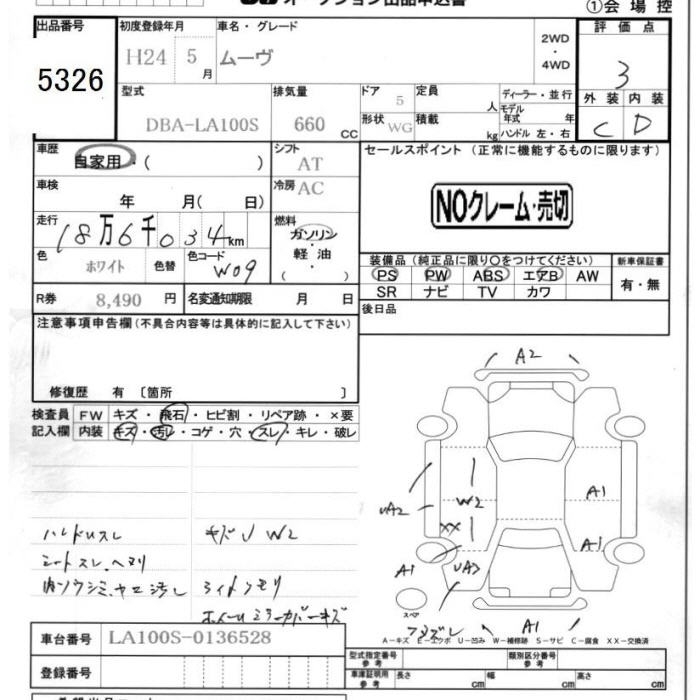 オークション出品申込書
①会場控
出品番号
5326
初度登録年月
H24 5月
車名・グレード
ムーヴ
2WD
・
4WD
評価点
3
外装 内装
C D
型式
DBA-LA100S
排気量
660 CC
ドア
5
定員
人
ディーラー・並行
モデル
年式 年
形状
WG
積載
kg
ハンドル 左・右
車歴
自家用・( )
シフト
AT
セールスポイント (正常に機能するものに限ります)
車検
年 月( 日)
冷房
AC
NOクレーム・売切
走行
18万6千034km
燃料
ガソリン
・
軽油
色
ホワイト
色替
色コード
W09
装備品(純正品に限り〇をつけてください)
新車保証書
PS PW ABS エアB AW
SR ナビ TV カワ
有・無
R券
8,490 円
名変通知期限 月 日
後日品
注意事項申告欄(不具合内容等は具体的に記入して下さい)
修復歴 有 〔箇所 〕
検査員
記入欄
FW キズ・飛石・ヒビ割・リペア跡・×要
内装 キズ・汚レ・コゲ・穴・スレ・キレ・破レ
ハンドルスレ
シートスレ、ヘタリ
キズ W2
ライトクモリ
ホイールミラーカバーキズ
A2
A2
W2
XX
A1
A1
A1
UA3
A1
スペア
A-キズ E-エクボ U-凹み W-補修跡 S-サビ C-腐食 XX-交換済
車台番号
LA100S-0136528
登録番号
型式指定番号
参考
類別区分番号
参考
車庫証明用
参考
長さ cm
幅 cm
高さ cm